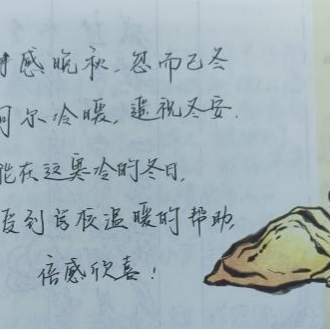 时感晚秋,忽而已冬
问尔冷暖,遥祝冬安.
能在这寒冷的冬日,
受到首校温暖的帮助,
倍感欣喜!